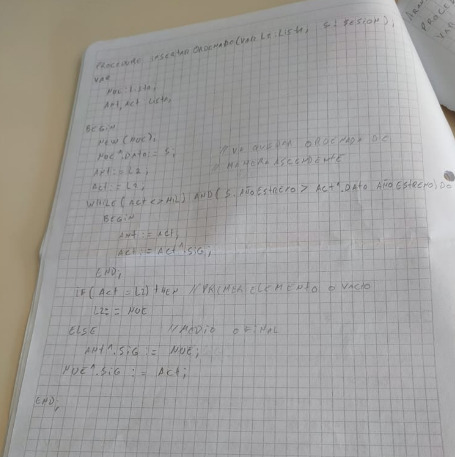 PROCEDURE INSERTARORDENADO(VAR L2: Lista; S: SESION);
VAR
NUE: Lista;
ANT, Act: Lista;
BEGIN
NEW(NUE);
NUE^.DATO := S;
ANT := L2; // MANERA ASCENDENTE
Act := L2;
WHILE (Act <> NIL) AND (S. AÑOESTRENO > Act^.DATO. AÑOESTRENO) DO
BEGIN
ANT := Act;
Act := Act^.SIG;
END;
IF (Act = L2) then // PRIMER ELEMENTO O VACIO
L2:= NUE
ELSE // MEDIO O FINAL
ANT^.SIG := NUE;
NUE^.SIG := Act;
END;